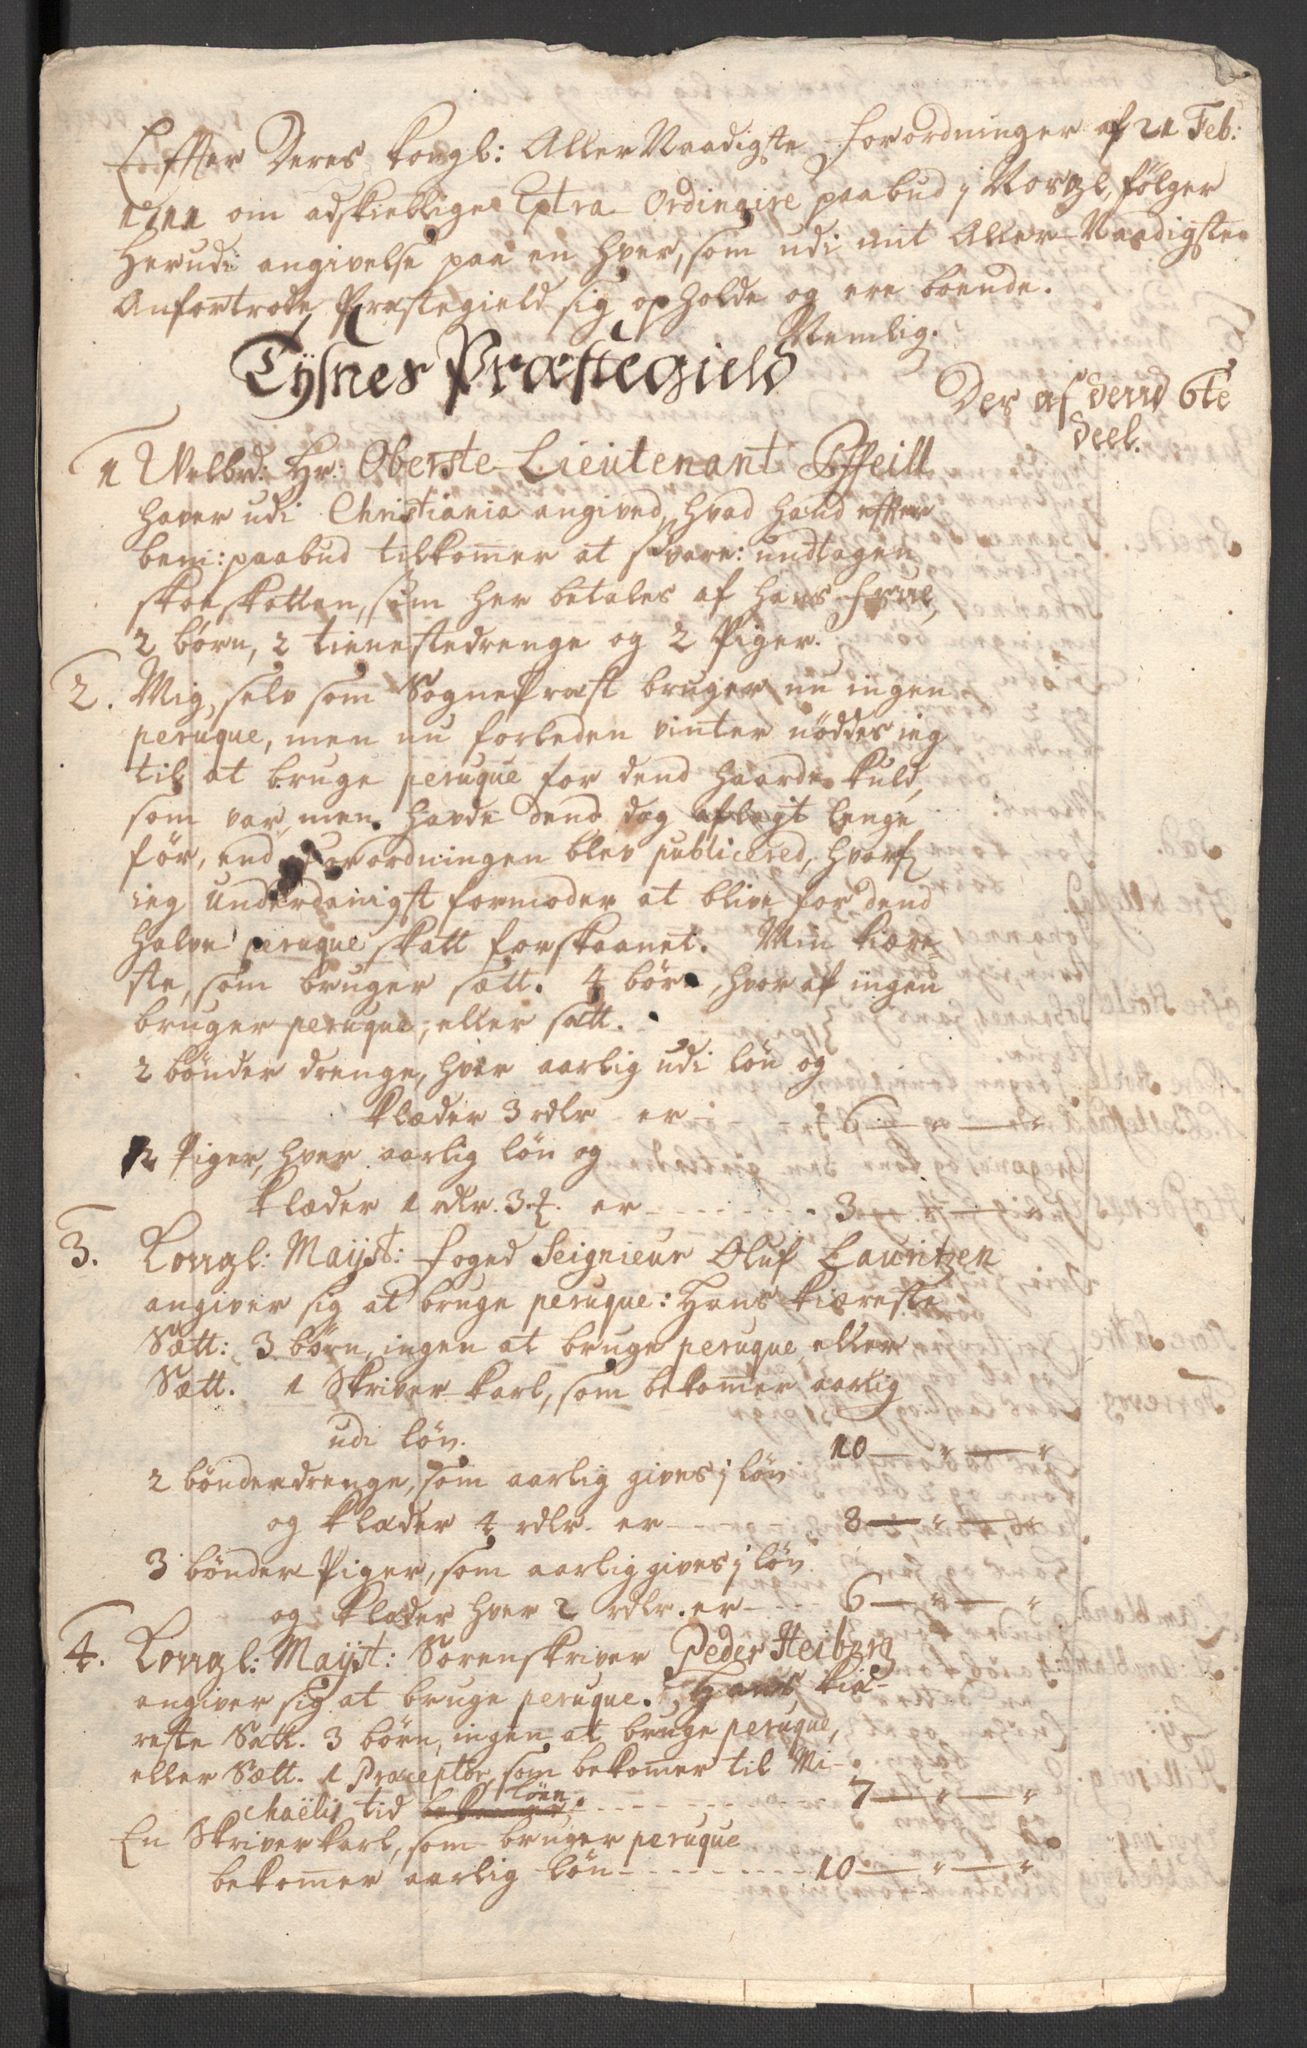 Effter Deres kongl: Aller Naadigste forordninger af 21 Feb:
1711 om adskiellige Extra Ordinaire paabud j Norge, følger
herudi angivelse paa en hver, som udi mit Aller Naadigste
Anfortrode Præstegield sig opholde og ere boende.
Nemlig.
Tysnes Præstegield
Der af dend 6te
Deel.
1 Velbrd: Hr: Oberste Lieutenant Pffeill
haver udi Christiania angived, hvad hand effter
bem: paabud tilkommer at svare: undtagen
skoeskatten, som her betales af hans frue,
2 børn, 2 tienestedrenge og 2 Piger.
2. Mig selv som SognePræst bruger nu ingen
peruque, men nu forleden vinter nøddes ieg
til at bruge peruque for dend haarde kuld,
som var, men havde dend dog aflagt lenge
før, end forordningen blev publicered, hvorf
ieg underdanigst formoder at blive for dend
halve peruque skatt forskaanet. Min kiære-
ste, som bruger sætt. 4 børn, hvor af ingen
bruger peruque, eller sætt.
2 bønder drenge, hver aarlig udi løn og
klæder 3 rdlr er - 6 — " — "
2 Piger, hver aarlig løn og
klæder 1 rdlr. 3 ₰. er - - - - - - - - 3 — " — "
3. Kongl: Mayst: foged Seignieur Oluf Lauritzen
angiver sig at bruge peruque: Hans kiæreste
Sætt: 3 børn, ingen at bruge peruque eller
Sætt. 1 Skriver karl, som bekommer aarlig
udi løn. 10 — " — "
2 bønderdrenge, som aarlig gives j løn
og klæder 4 rdlr er - - - - 8 — " — "
3 bønder Piger, som aarlig gives j løn
og klæder hver 2 rdlr. er - - - - 6 — " — "
4. Kongl: Mayst: Sorenskriver Peder Heiberg
angiver sig at bruge peruque. Hans kiæ-
reste Sætt. 3 børn, ingen at bruge peruque,
eller Sætt. 1 Præceptor, som bekommer til Mi-
chaëlis tid løn. - - - - - - - - 7 — " — "
En Skriverkarl, som bruger peruque
bekommer aarlig løn - - - - - - - - 10 — " — "